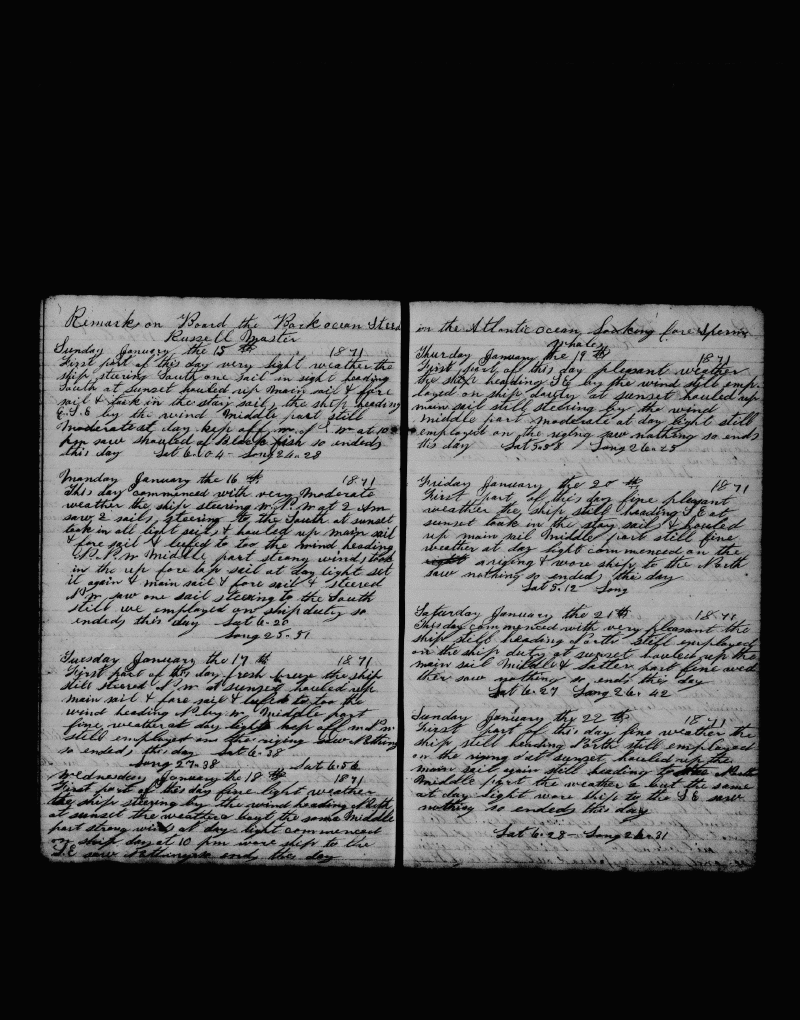 Remarks on Board the Bark ocean Steed
Russell Master
Sunday January the 15 th 1871
First part of this day very light weather the
ship steering South one sail in sight heading
South at sunset hauled up main sail & fore
sail & took in the stay sails the ship heading
E.S.E by the wind Middle part still
Moderate at day kep off at 10
pm saw shoal of black fish so ended
this day Lat 6-04- Long 24-28
Manday January the 16 th 1871
This day commenced with very Moderate
weather the ship steering at 2 Am
saw 2 sails steering to the South at sunset
took in all light sails & hauled up main sail
& fore sail & lufed to too the wind heading
Middle part strong winds took
in the up fore top sail at day light set
it again & main sail & fore sail & steered
saw one sail steering to the South
still we employed on ship duty so
ended this day Lat 6-20
Long 25-51
Tuesday January the 17 th 1871
First part of this day fresh breeze the ship
still steered at sunset hauled up
main sail & fore sail & lufed to too the
wind heading N by W Middle part
fine weather at day light kep off
still employed on the riging saw Nothing
so ended this day Lat 6-38
Long 27-38 Lat 6-56
Wednesday January the 18 th 1871
First part of this day fine light weather
the ship steering by the wind heading North
at sunset the weather but the same Middle
part strong winds at day light commenced
on ship day at 10 pm wore ship to the
S.E saw Nothing so ends this day
in the Atlantic ocean, Looking fore Sperm
Whales
Thursday January the 19 th 1871
First part off this day pleasent weather
the ship heading S.E by the wind still emp-
loyed on ship dauty at sunset hauled up
main sail still steering by the wind
middle part moderate at day light still
employed on the riging saw nothing so ends
this day Lat 5-88 Long 26-28
Friday January the 20 th 1871
First part of this day fine plesant
weather the ship still heading S.E at
sunset took in the stay sail & hauled
up main sail Middle part still fine
weather at day light commenced on the
riging & wore ship to the North
saw nothing so ended this day
Lat 5-12 Long
Saturday January the 21 th 1871
This day commenced with very pleasant the
ship still heading North still employed
on the ship duty at sunset hauled up the
main sail Middle & latter part fine wed
ther saw nothing so ends this day
Lat 6-27 Long 26-42
Sunday January the 22 th 1871
First part of this day fine weather the
ship still heading North still employed
on the riging at sunset hauled up the
main sail again still heading to North
Middle part the weather but the same
at day light wore ship to the S.E saw
nothing so ended this day
Lat 6-28- Long 26-31